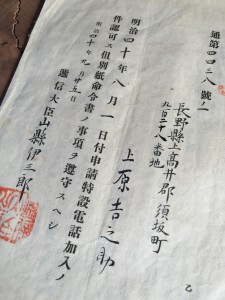 通第四四三八號ノ一
長野縣上高井郡須坂町
九百二十八番地
上原吉之助
明治四十年八月一日付申請特設電話加入ノ
件認可ス但別紙命令書ノ事項ヲ遵守スヘシ
明治四十年九月廿五日
遞信大臣山縣伊三郎
乙